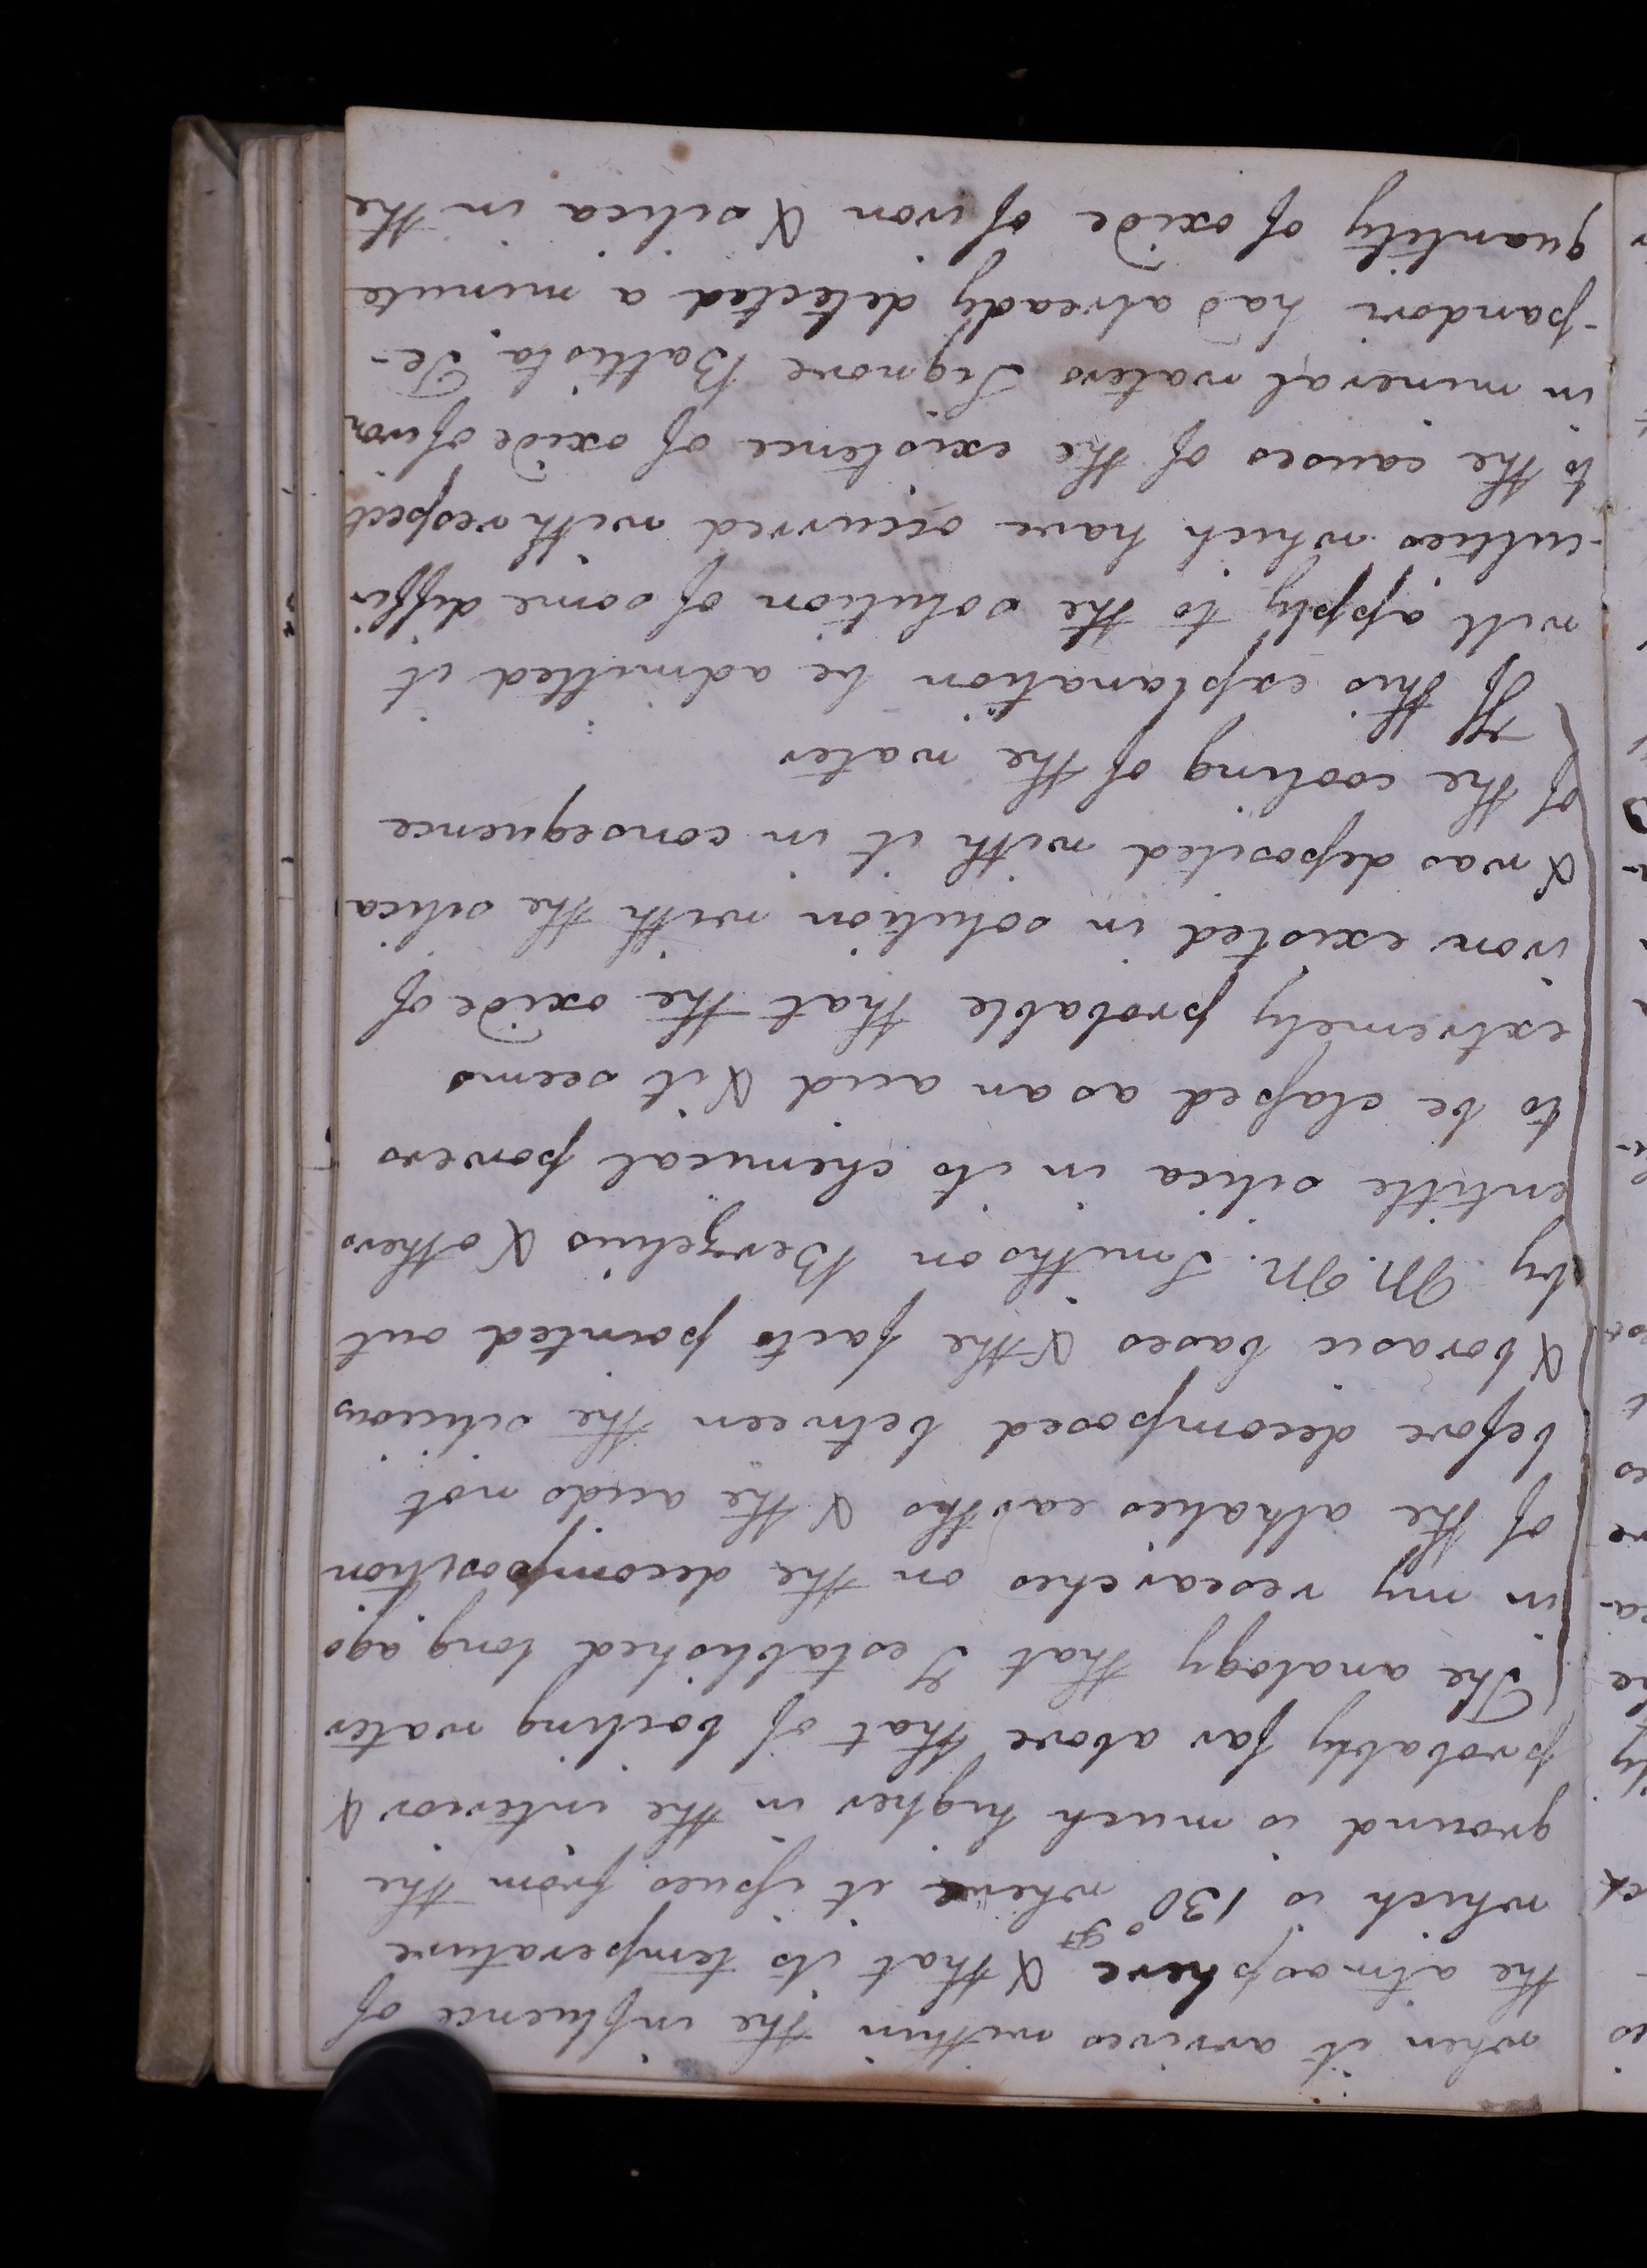 when it arrives within the influence of
the atmosphere & that its temperature
which is 130° gt where it issues from the
ground is much higher in the interior &
probably far above that of boiling water
The analogy that I established long ago
in my researches on the decomposition
of the alkalies earths & the acids not
before decomposed between the silicious
& borasic bases & the facts pointed out
by M. M. Smithson Berzelius & others
entitle silica in its chemical powers
to be classed as an acid & it seems
extremely probable that the oxide of
iron existed in solution with the silica
& was deposited with it in consequence
of the cooling of the water
If this explanation be admitted it
will apply to the solution of some diffi
-culties which have occurred with respect
to the causes of the existence of oxide of iron
in mineral waters Signore Battista Te-
-pandori had already detected a minute
quantity of oxide of iron & silica in the